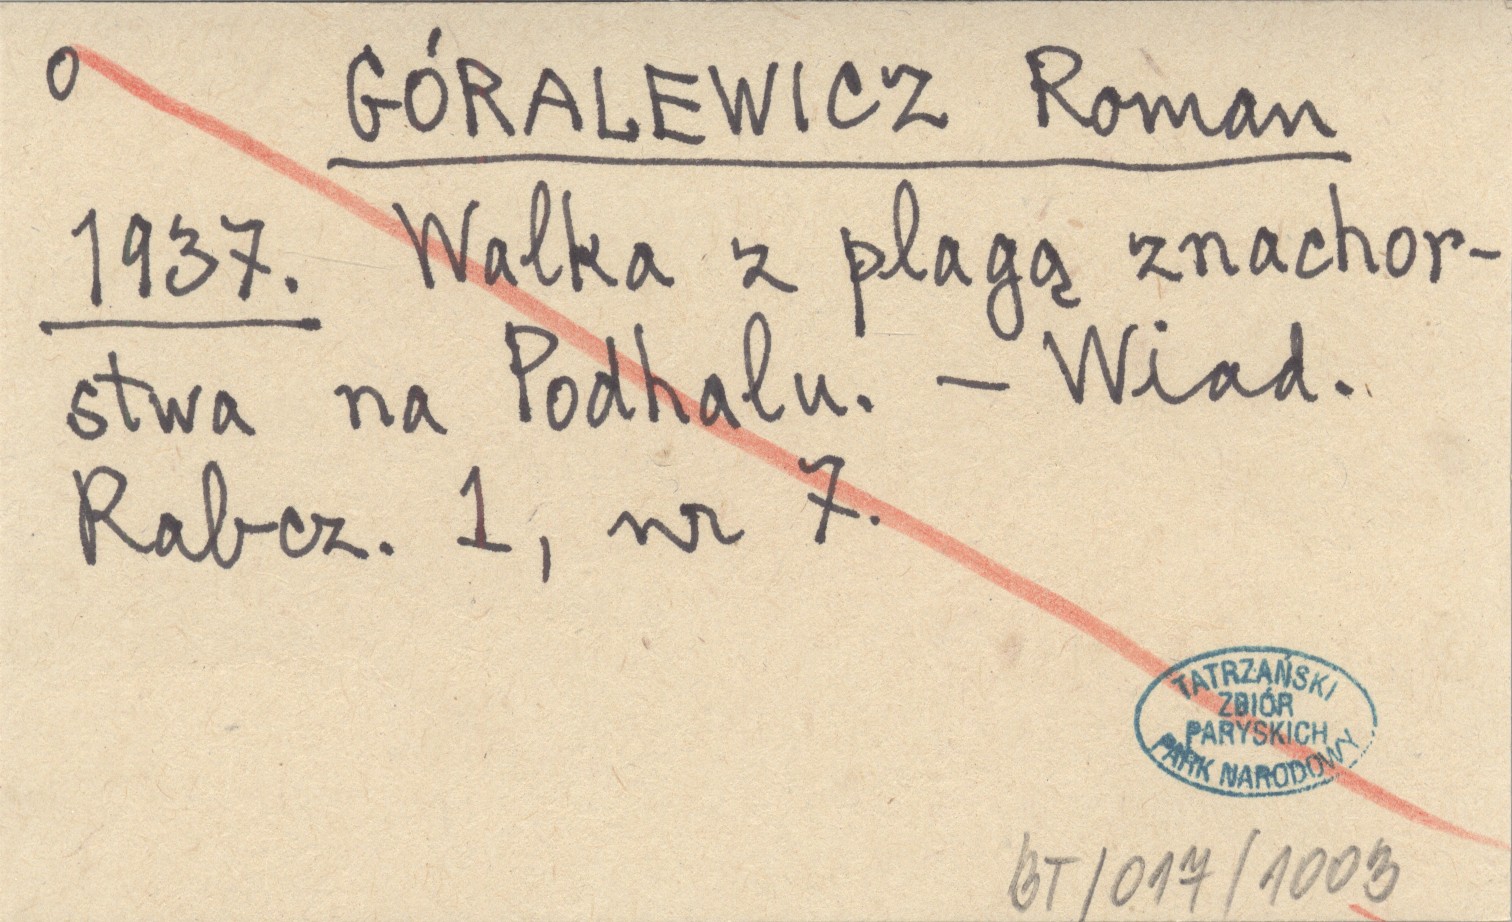 o GÓRALEWICZ Roman
1937. Walka z plagą znachor-
stwa na Podhalu. – Wiad.
Rabcz. 1, nr 7.
TATRZAŃSKI
ZBIÓR
PARYSKICH
PARK NARODOWY
BT/017/1003